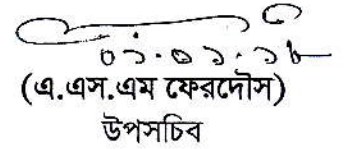 ০১.০১.১৮
(এ.এস.এম ফেরদৌস)
উপসচিব